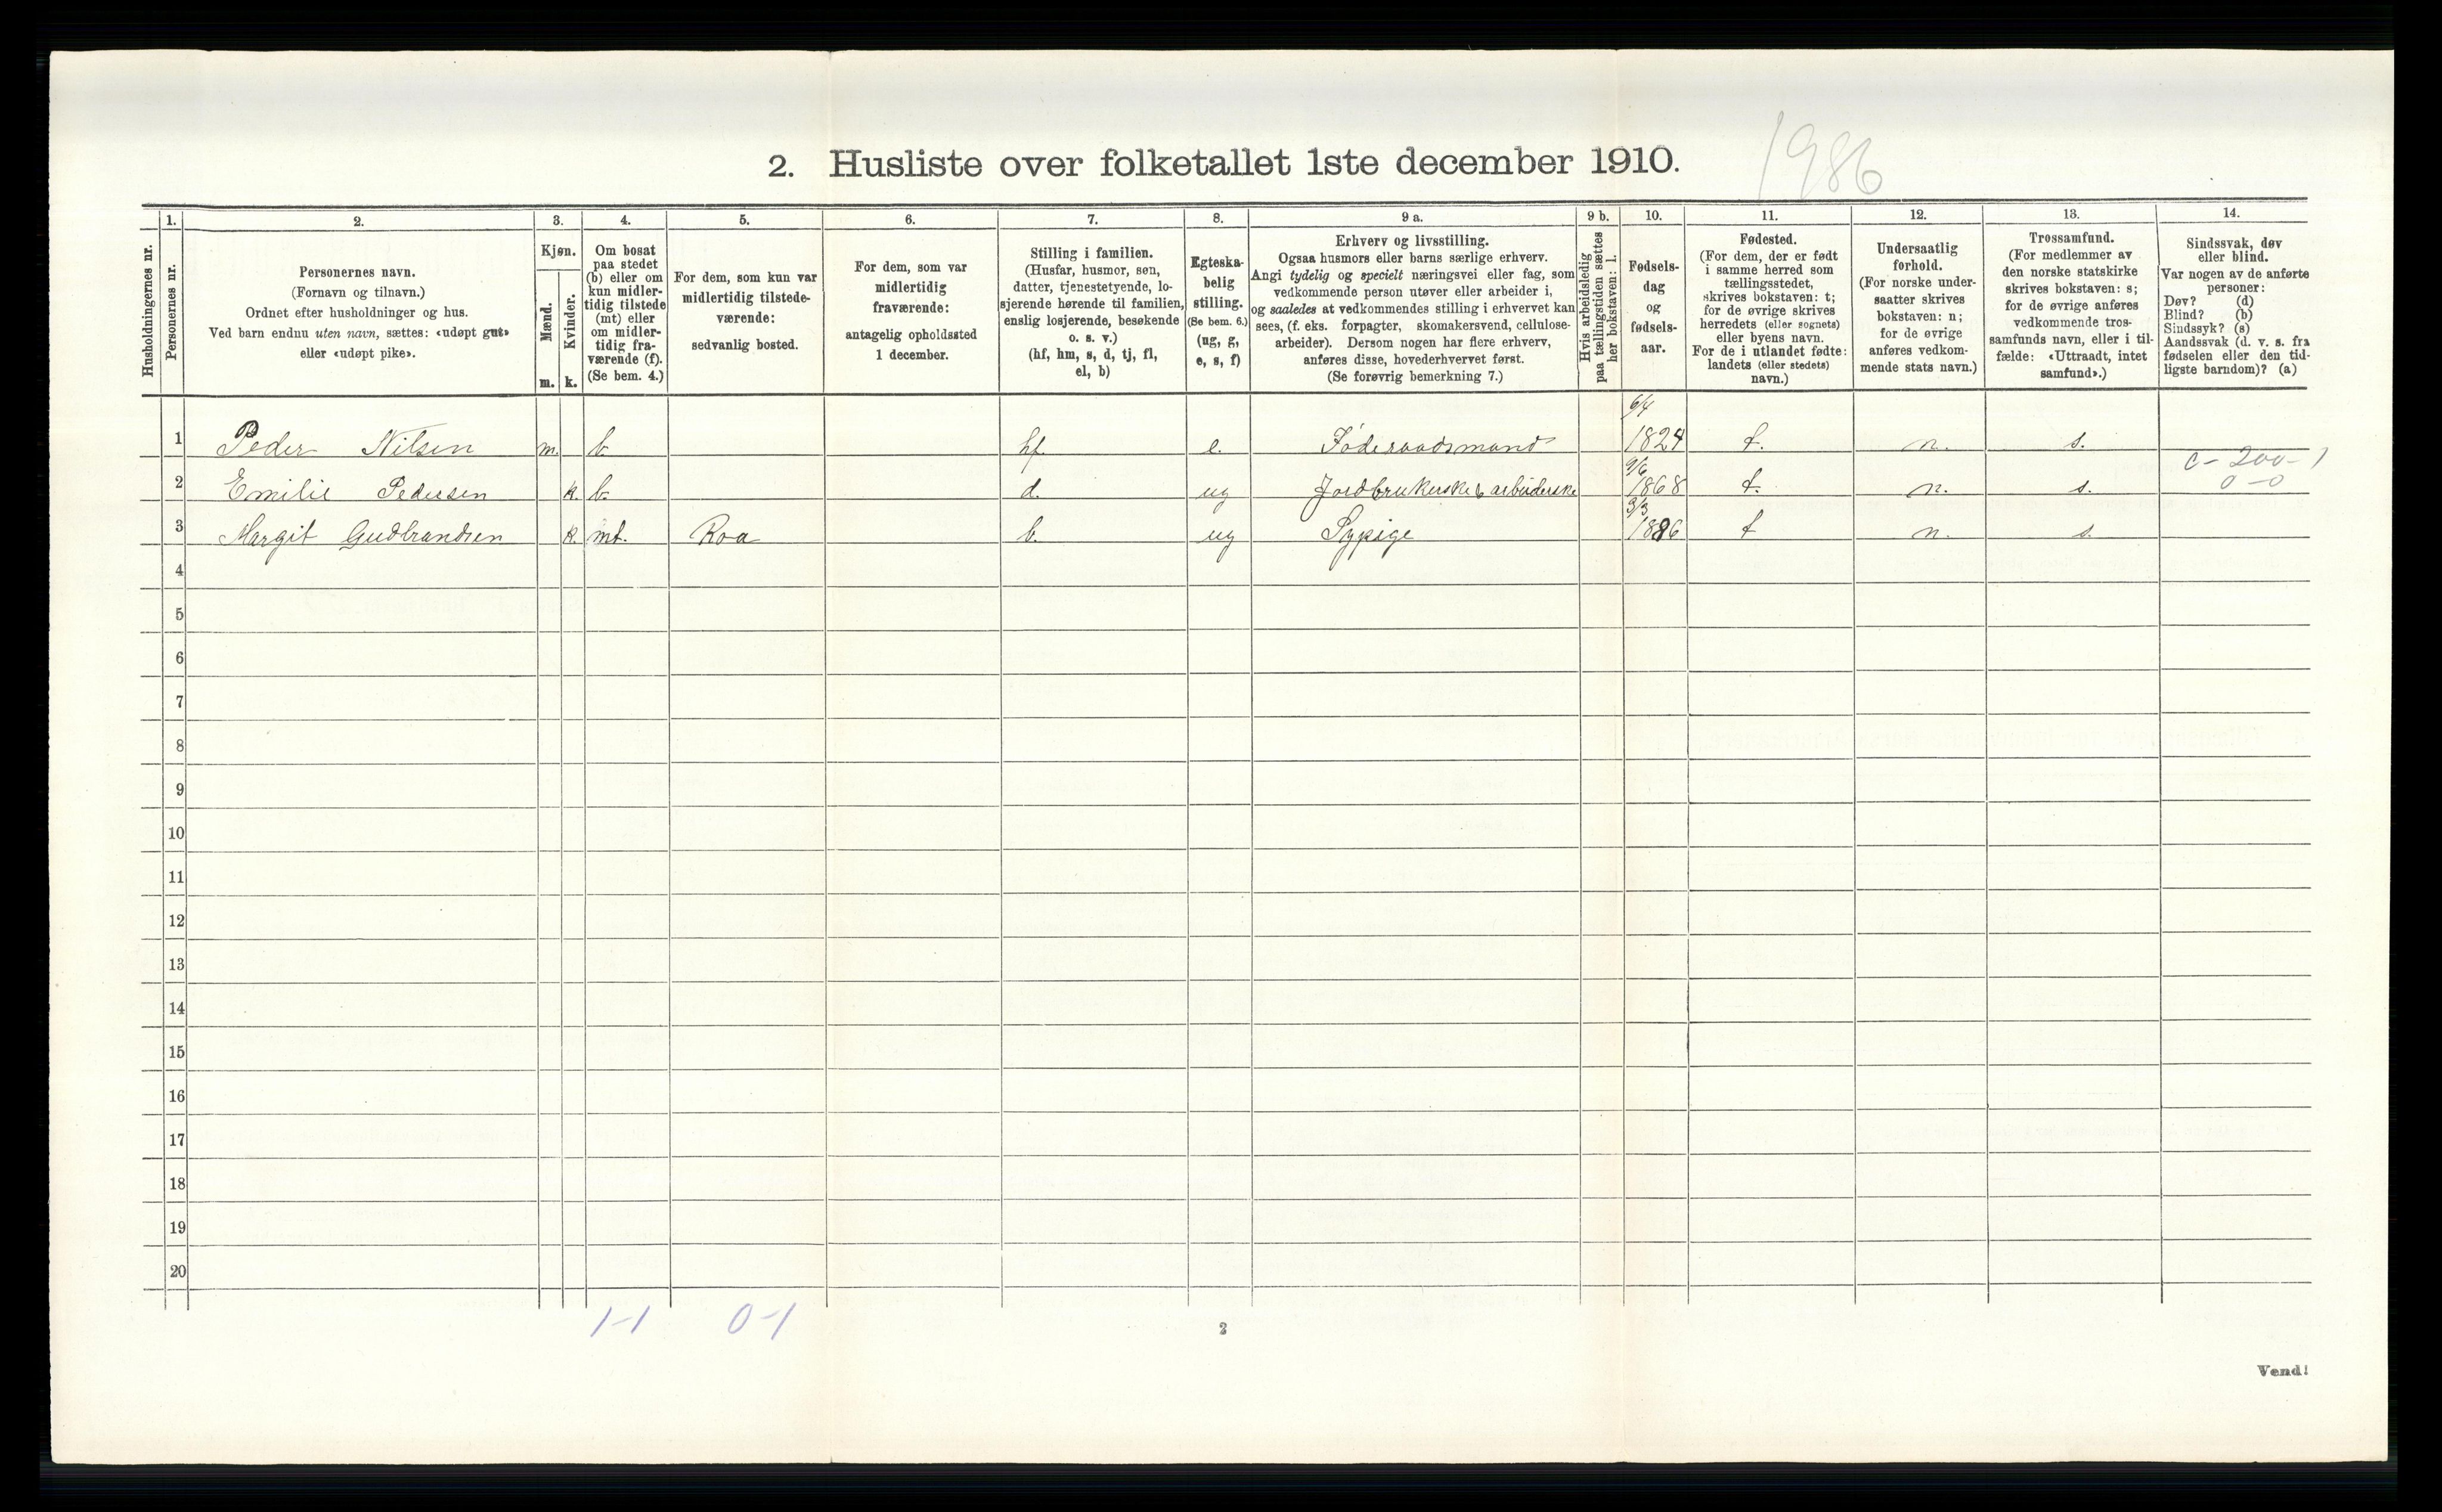 1986
2. Husliste over folketallet 1ste december 1910.
Husholdningernes nr.
1.
Personernes nr.
2.
Personernes navn.
(Fornavn og tilnavn.)
Ordnet efter husholdninger og hus.
Ved barn endnu uten navn, sættes: «udøpt gut»
eller «udøpt pike».
3.
Kjøn.
Mænd.
Kvinder.
m. k.
4.
Om bosat
paa stedet
(b) eller om
kun midler-
tidig tilstede
(mt) eller
om midler-
tidig fra-
værende (f).
(Se bem. 4.)
5.
For dem, som kun var
midlertidig tilstede-
værende:
sedvanlig bosted.
6.
For dem, som var
midlertidig
fraværende:
antagelig opholdssted
1 december.
7.
Stilling i familien.
(Husfar, husmor, søn,
datter, tjenestetyende, lo-
sjerende hørende til familien,
enslig losjerende, besøkende
o. s. v.)
(hf, hm, s, d, tj, fl,
el, b)
8.
Egteska-
belig
stilling.
(Se bem. 6.)
(ug, g,
e, s, f)
9 a.
Erhverv og livsstilling.
Ogsaa husmors eller barns særlige erhverv.
Angi tydelig og specielt næringsvei eller fag, som
vedkommende person utøver eller arbeider i,
og saaledes at vedkommendes stilling i erhvervet kan
sees, (f. eks. forpagter, skomakersvend, cellulose-
arbeider). Dersom nogen har flere erhverv,
anføres disse, hovederhvervet først.
(Se forøvrig bemerkning 7.)
9 b.
Hvis arbeidsledig
paa tællingstiden sættes
her bokstaven: l.
10.
Fødsels-
dag
og
fødsels-
aar.
11.
Fødested.
(For dem, der er født
i samme herred som
tællingsstedet,
skrives bokstaven: t;
for de øvrige skrives
herredets (eller sognets)
eller byens navn.
For de i utlandet fødte:
landets (eller stedets)
navn.)
12.
Undersaatlig
forhold.
(For norske under-
saatter skrives
bokstaven: n;
for de øvrige
anføres vedkom-
mende stats navn.)
13.
Trossamfund.
(For medlemmer av
den norske statskirke
skrives bokstaven: s;
for de øvrige anføres
vedkommende tros-
samfunds navn, eller i til-
fælde: «Uttraadt, intet
samfund».)
14.
Sindssvak, døv
eller blind.
Var nogen av de anførte
personer:
Døv? (d)
Blind? (b)
Sindssyk? (s)
Aandssvak (d. v. s. fra
fødselen eller den tid-
ligste barndom)? (a)
1 Peder Nilsen m. b. hf. e. Føderaadsmand 6/4 1824 t. n. s.
2 Emilie Pedersen k. b. d. ug Jordbrukerske & arbeiderske 9/6 1868 t. n. s. c-200-1
0-0
3 Margit Gudbrandsen k. mt. Roa b. ug Sypige 3/3 1886 t n. s.
4
5
6
7
8
9
10
11
12
13
14
15
16
17
18
19
20
1-1 0-1
2
Vend!